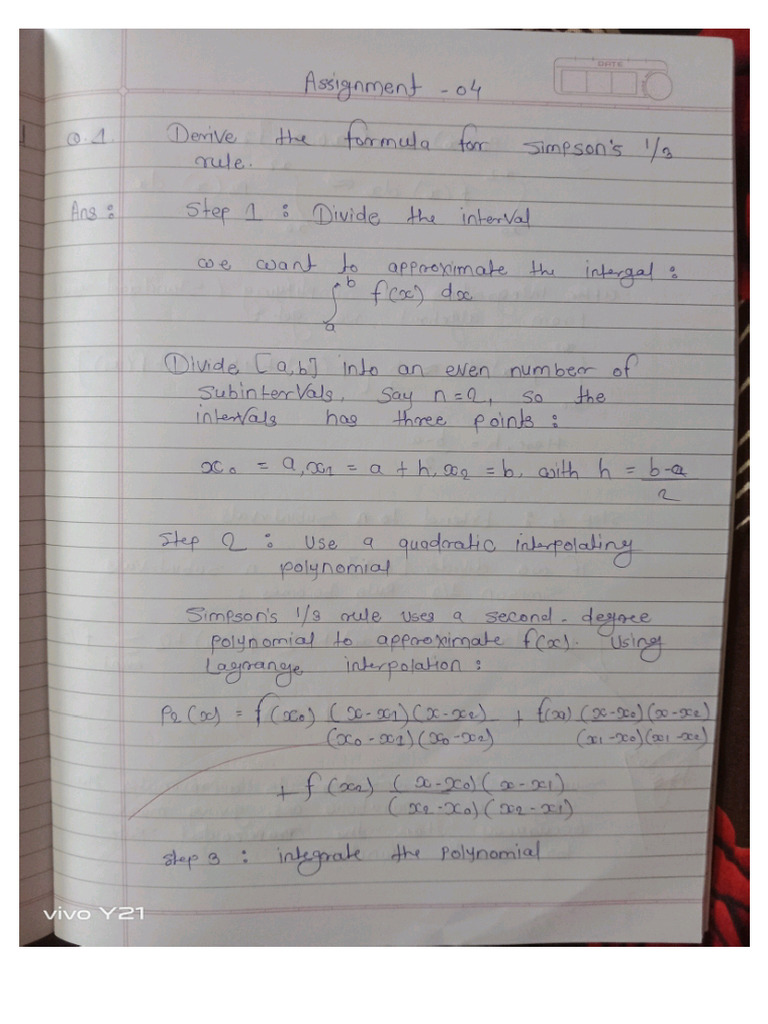 DATE
Assignment - 04
Q.1 Derive the formula for Simpson's 1/3
rule.
Ans : Step 1 : Divide the interval
we want to approximate the intergal :
∫_a^b f(x) dx
Divide [a,b] into an even number of
subintervals, say n=2, so the
intervals has three points :
x0 = a, x1 = a + h, x2 = b, with h = (b-a)/2
Step 2 : Use a quadratic interpolating
polynomial
Simpson's 1/3 rule uses a second-degree
polynomial to approximate f(x). Using
Lagrange interpolation :
P2(x) = f(x0) (x-x1)(x-x2)/(x0-x1)(x0-x2) + f(x1) (x-x0)(x-x2)/(x1-x0)(x1-x2)
+ f(x2) (x-x0)(x-x1)/(x2-x0)(x2-x1)
Step 3 : integrate the polynomial
vivo Y21